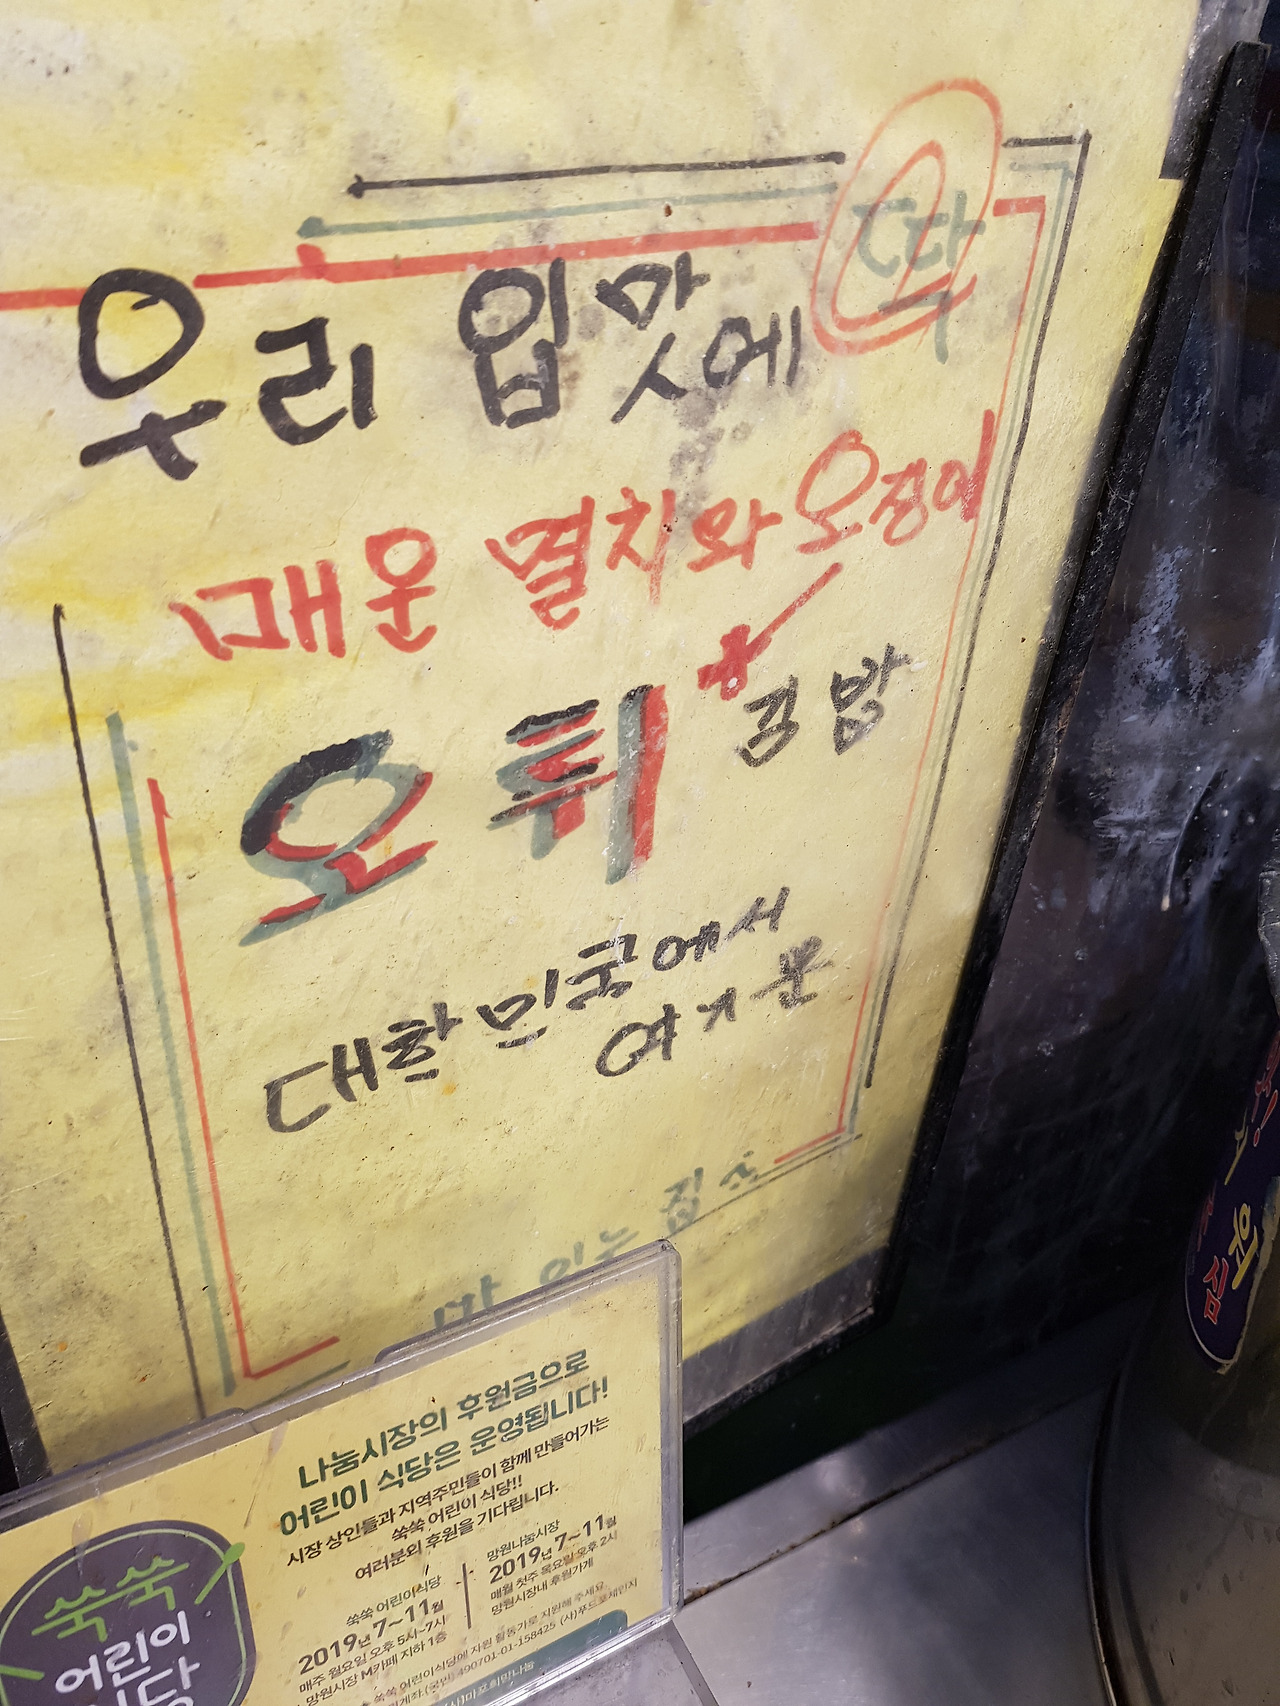 우리 입맛에 딱
매운 멸치와 오징어
오튀 김밥
대한민국에서
여기뿐
있는 집
나눔시장의 후원금으로
어린이 식당은 운영됩니다!
시장 상인들과 지역주민들이 함께 만들어가는
쑥쑥 어린이 식당!!
여러분의 후원을 기다립니다.
쑥쑥 어린이식당
2019년 7~11월
매주 월요일 오후 5시~7시
망원시장 M카페 지하 1층
망원나눔시장
2019년 7~11월
매월 첫주 목요일 오후 2시
망원시장내 후원가게
쑥쑥 어린이식당에 자원 활동가로 지원해 주세요
490701-01-158425 (사)푸드포체인지
쑥쑥
어린이
식당